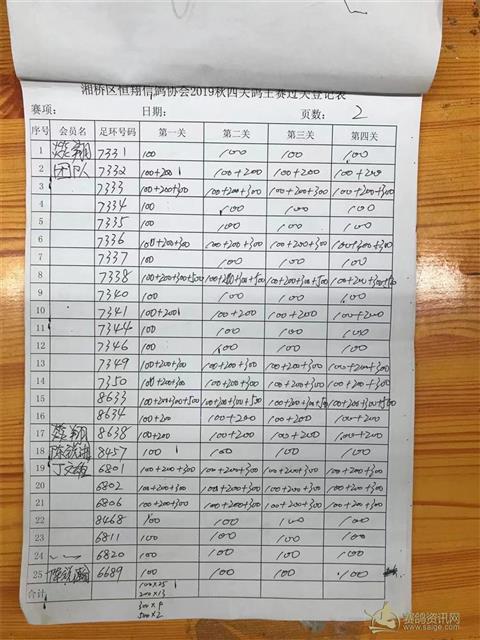 湘桥区恒翔信鸽协会2019秋四关鸽王赛过关登记表
赛项: 日期: 页数: 2
序号 会员名 足环号码 第一关 第二关 第三关 第四关
1 翔 7331 100 100 100 100
2 团队 7332 100+200 100+200 100+200 100+200
3 7333 100+200+300 100+200+300 100+200+300 100+200+300
4 7334 100 100 100 100
5 7335 100 100 100 100
6 7336 100+200+300 100+200+300 100+200+300 100+300+300
7 7337 100 100 100 100
8 7338 100+200+300+500 100+200+300+500 100+200+300+500 100+200+300+500
9 7340 100 100 100 100
10 7341 100+200 100+200 100+200 100+200
11 7344 100 100 100 100
12 7346 100 100 100 100
13 7349 100+200+300 100+200+300 100+200+300 100+200+300
14 7350 100+200+300 100+200+300 100+200+300 100+200+300
15 8633 100+200+300+500 100+200+300+500 100+200+300+500 100+200+300+500
16 8634 100+200 100+200 100+200 100+200
17 翔 8638 100+200 100+200 100+200 100+200
18 陈 8457 100 100 100 100
19 丁文 6801 100+200+300 100+200+300 100+200+300 100+200+300
20 6802 100+200+300 100+200+300 100+200+300 100+200+300
21 6806 100+200+300 100+200+300 100+200+300 100+200+300
22 8468 100 100 100 100
23 6811 100 100 100 100
24 6820 100 100 100 100
25 陈 6689 100 100 100 100
合计 100×25
200×13
300×9
500×2
赛鸽资讯网
www.saige.com